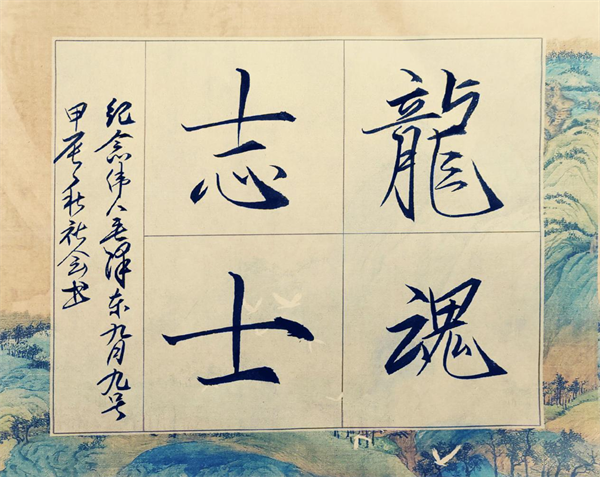 龍魂
志士
纪念伟人毛泽东九月九号
甲辰年秋社会书